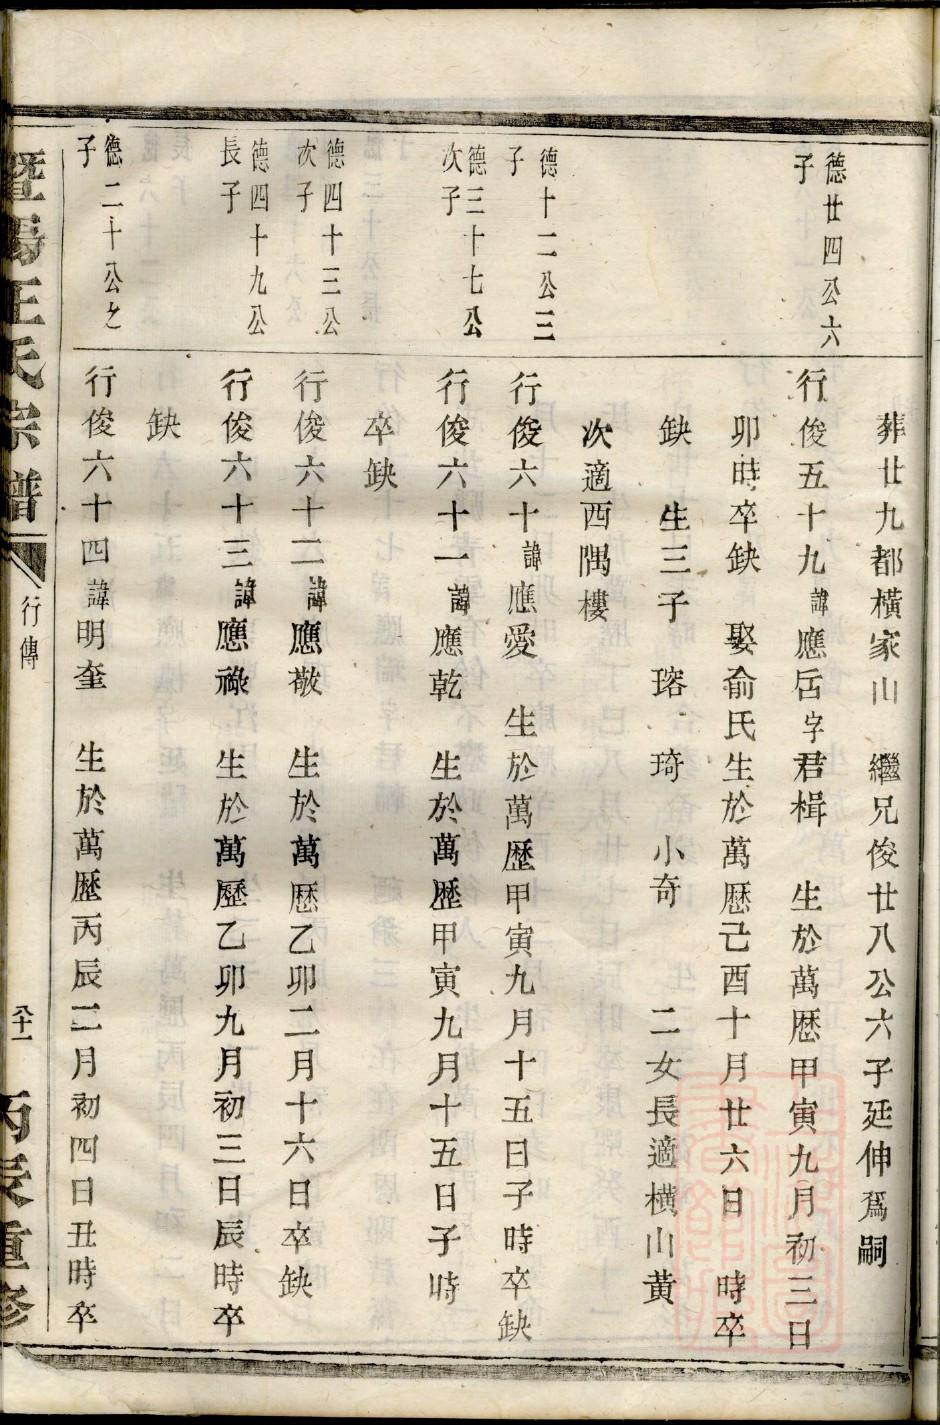 葬廿九都橫家山　繼兄俊廿八公六子廷伸爲嗣
德廿四公六
子
行俊五十九諱應㕔字君楫　生於萬歷甲寅九月初三日
卯時卒缺　娶俞氏生於萬歷己酉十月廿六日　時卒
缺　生三子　瑢　琦　小奇　二女長適橫山黃
次適西隅樓
德十二公三
子
行俊六十諱應愛　生於萬歷甲寅九月十五日子時卒缺
德三十七公
次子
行俊六十一諱應乾　生於萬歷甲寅九月十五日子時
卒缺
德四十三公
次子
行俊六十二諱應敬　生於萬歷乙卯二月十六日卒缺
德四十九公
長子
行俊六十三諱應祿　生於萬歷乙卯九月初三日辰時卒
缺
德二十公之
子
行俊六十四諱明奎　生於萬歷丙辰二月初四日丑時卒
暨陽王氏宗譜
行傳
丙辰重修